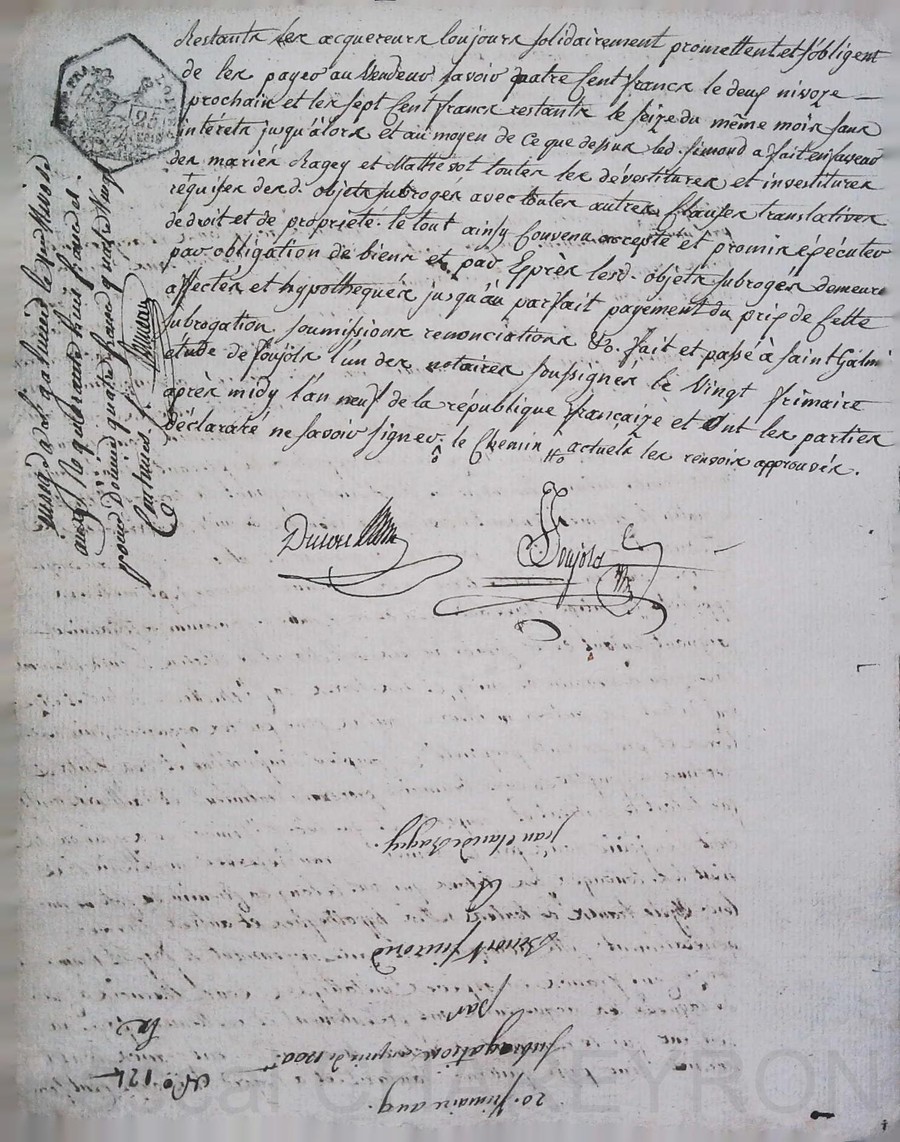 Restants les acquereurs toujours solidairement promettent et s'obligent
de les payer au Vendeur savoir quatre Cent francs le deux nivoze
prochain et les sept Cent francs restants le seize du même mois sans
intérets jusqu'alors et au moyen de ce que dessus led. Simond a fait en faveur
des mariés Ragey et Mathevot toutes les dévestitures et investitures
réquises desd. objets subrogés avec toutes autres Clauses translatives
de droit et de propriété. le tout ainsy Convenu accepté et promis éxécuter
par obligation de biens et par Exprès lesd. objets subrogés demeure
affectés et hypothequés jusqu'au parfait payement du prix de Cette
subrogation soumissions renonciations &c. fait et passé à Saint Galmi
étude de Poujols l'un des notaires soussignés le Vingt frimaire
après midy l'an neuf de la république française et Ont les parties
déclararé ne savoir signer. le Chemin actuels les renvois approuvés.
Poujols
enregistré a St galmier le
aux f° 16 quarante huit francs et
pour Douze quatre francs quatre Vingt
Centimes
20. frimaire an 9.
subrogation au prix de 1200
par
Benoit Simond
à
Jean Claude Ragey.
N.o 124